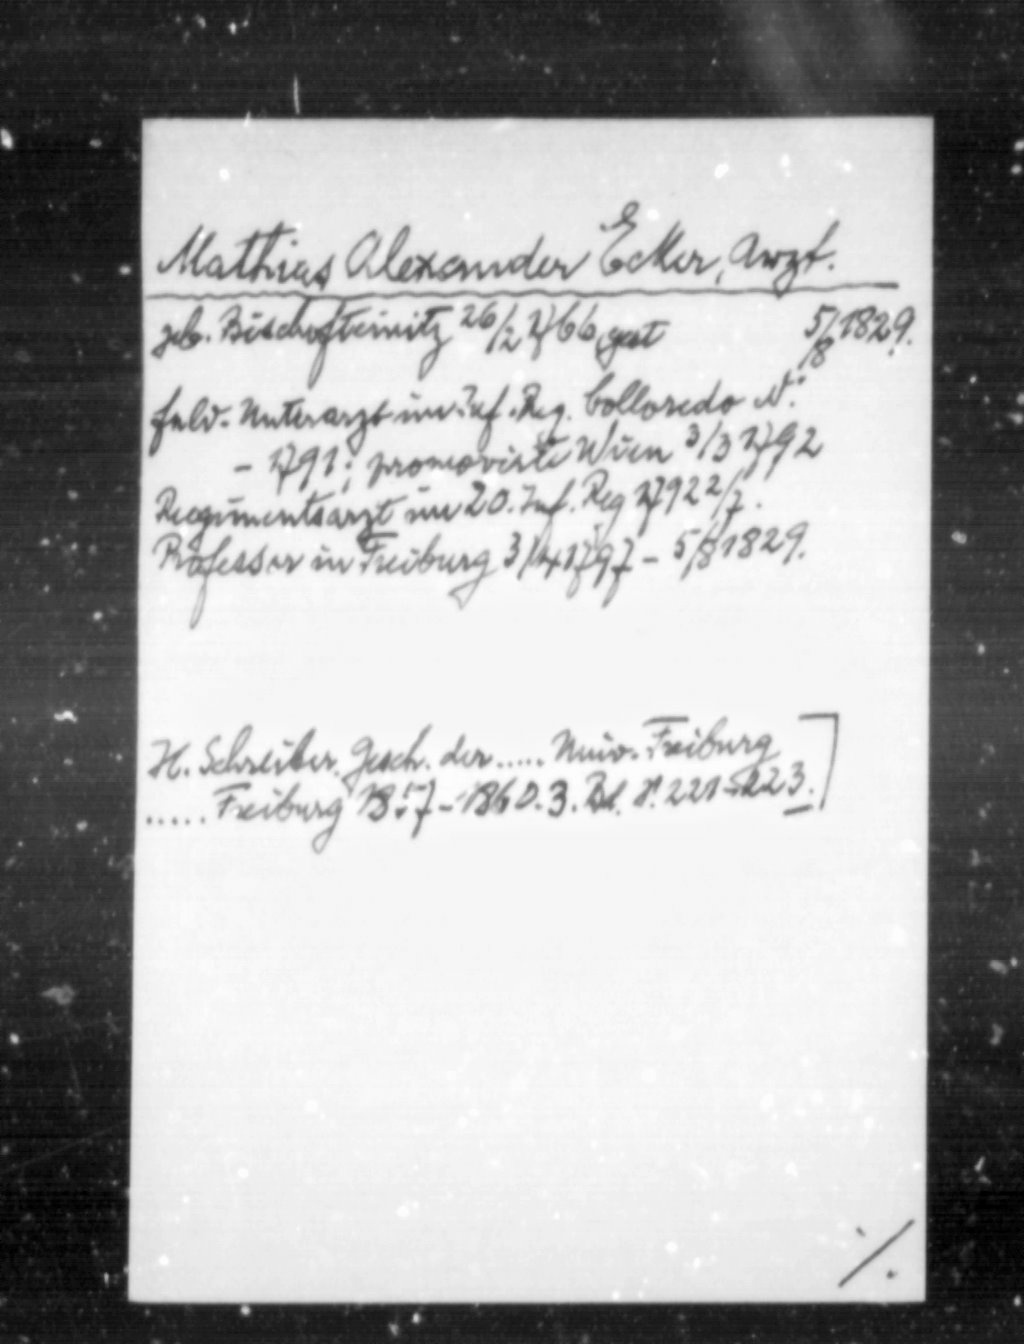 Mathias Alexander Ecker, Arzt.
geb. Bischofteinitz 26/2 1766, gest 5/8 1829.
Feld-Unterarzt im Inf. Reg. Colloredo N.
- 1791; promovirte Wien 3/3 1792
Regimentsarzt im 20. Inf. Reg 1792 2/7.
Professor in Freiburg 3/4 1797 - 5/8 1829.
H. Schreiber. Gesch. der ..... Univ. Freiburg
..... Freiburg 1857-1860. 3. Bd. S. 221-223.